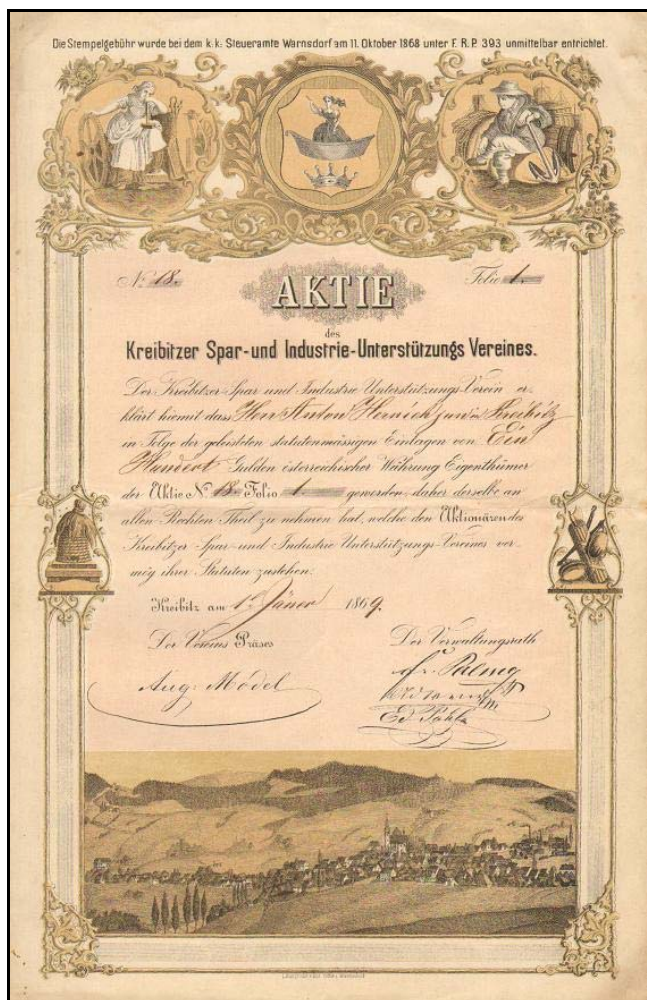 Die Stempelgebühr wurde bei dem k.k. Steueramte Warnsdorf am 11. Oktober 1868 unter F. R. P. 393 unmittelbar entrichtet.
No. 18. Folio 1.
AKTIE
des
Kreibitzer Spar-und Industrie-Unterstützungs Vereines.
Der Kreibitzer-Spar-und Industrie-Unterstützungs-Verein er-
klärt hiemit dass Herr Anton in Kreibitz
in Folge der geleisteten statutenmässigen Einlagen von Ein
Hundert Gulden österreichischer Währung Eigenthümer
der Aktie No. 18. Folio 1. geworden, daher derselbe an
allen Rechten Theil zu nehmen hat, welche den Aktionären des
Kreibitzer-Spar-und Industrie-Unterstützungs-Vereines ver-
mög ihrer Statuten zustehen.
Kreibitz am 1. Jäner 1869.
Der Vereins Präses Der Verwaltungsrath
Aug. Model
Palme
Ed.